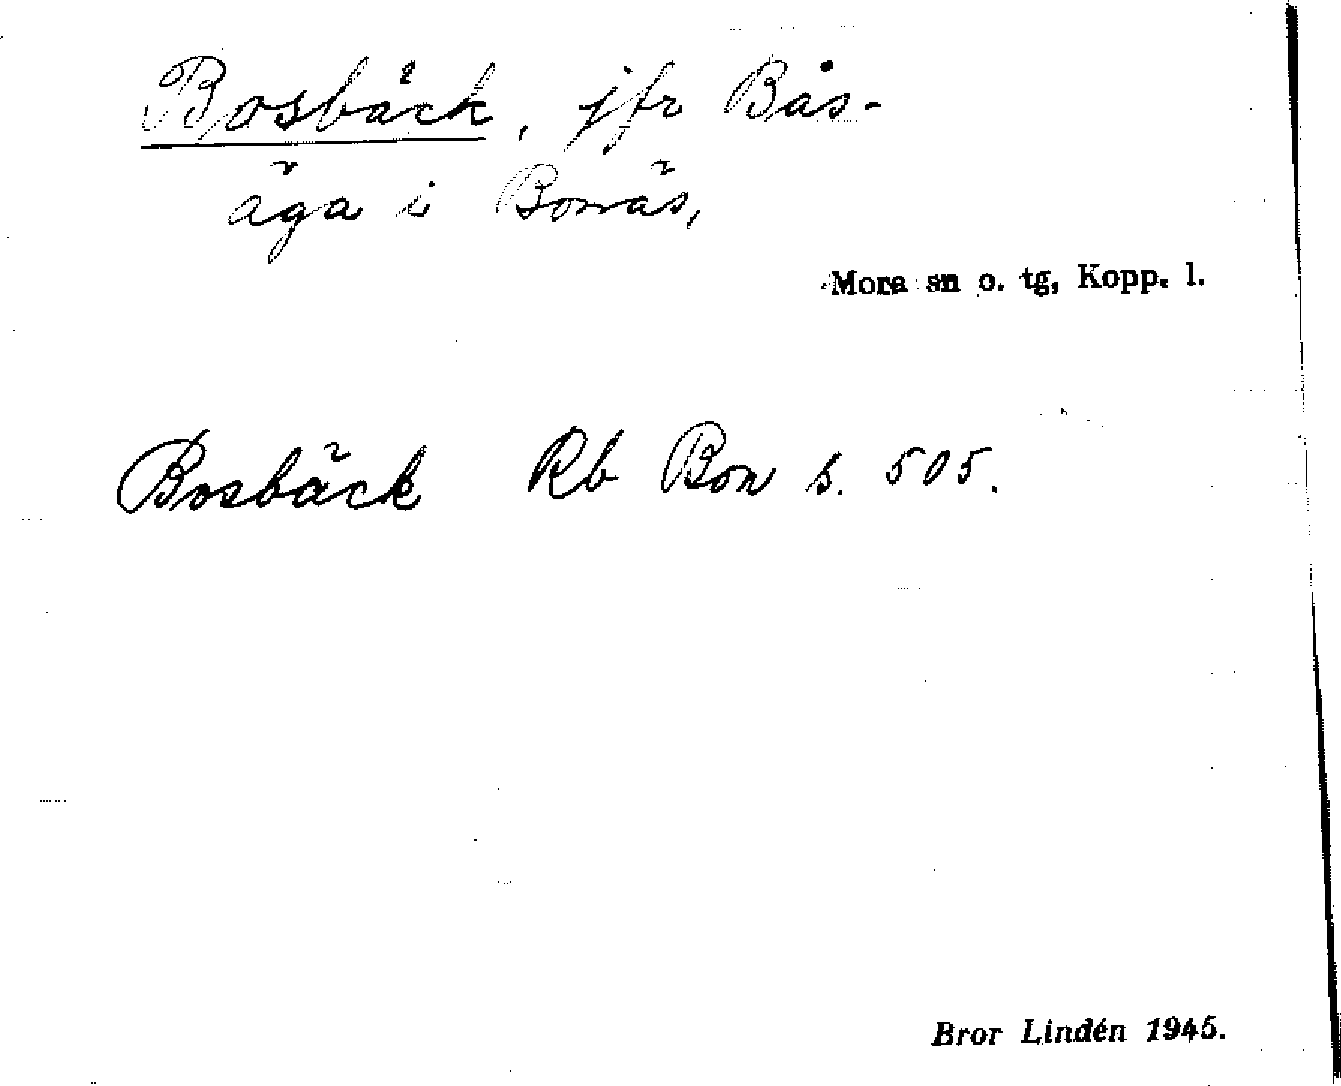 Bosbäck, jfr Bås-
äga i Bonäs,
Mora sn o. tg, Kopp. l.
Bosbäck Rb Bon s. 505.
Bror Lindén 1945.